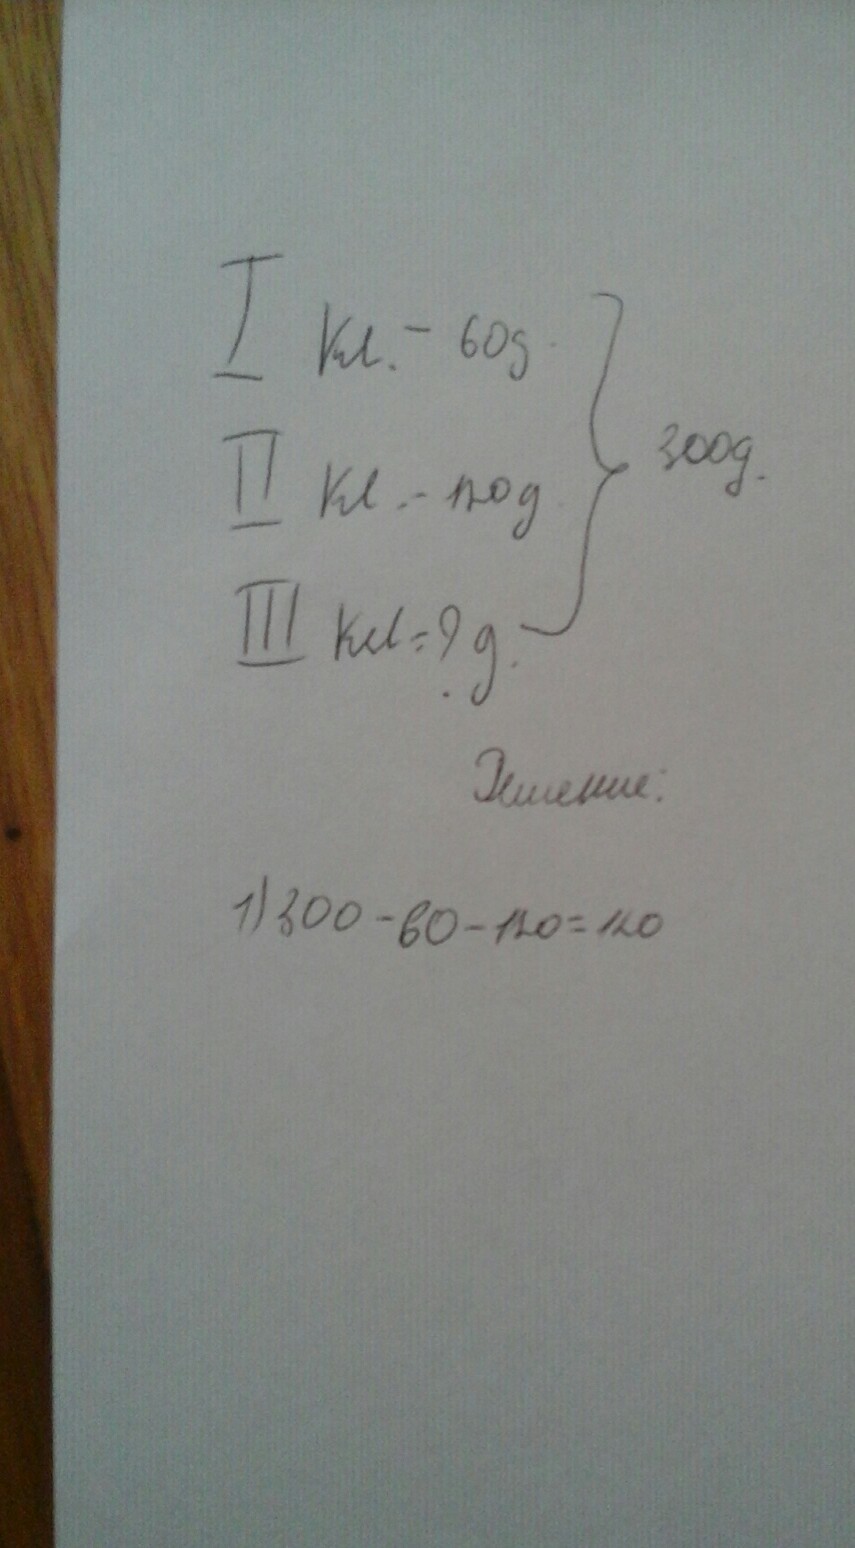 I Кл. - 60д.
II Кл. - 120д.
III Кл - ? д.
300д.
Решение:
1) 300 - 60 - 120 = 120